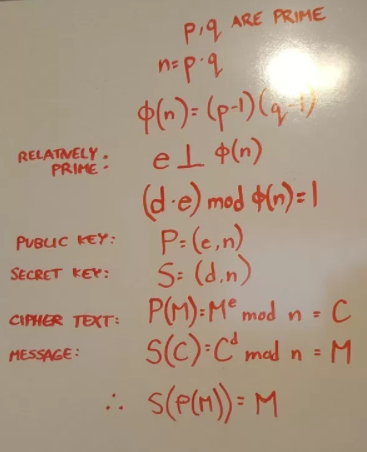 p,q ARE PRIME
n=p·q
φ(n)=(p-1)(q-1)
RELATIVELY PRIME: e⊥φ(n)
(d·e) mod φ(n)=1
PUBLIC KEY: P=(e,n)
SECRET KEY: S=(d,n)
CIPHER TEXT: P(M)=Mᵉ mod n = C
MESSAGE: S(C)=Cᵈ mod n = M
∴ S(P(M))=M